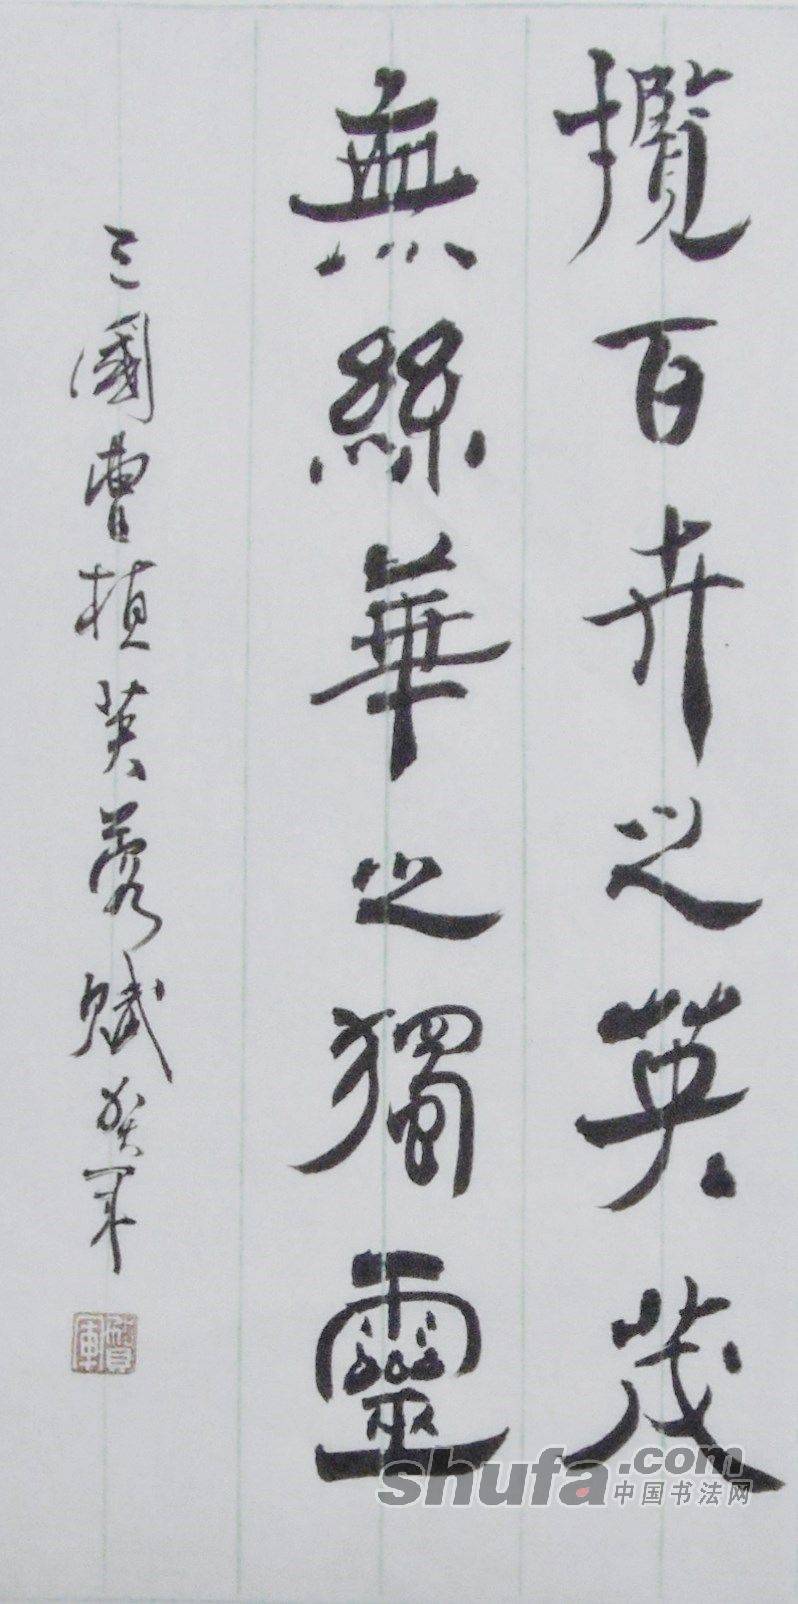 攬百卉之英茂
無絲華之獨靈
三國曹植芙蓉賦
shufa.com
中国书法网